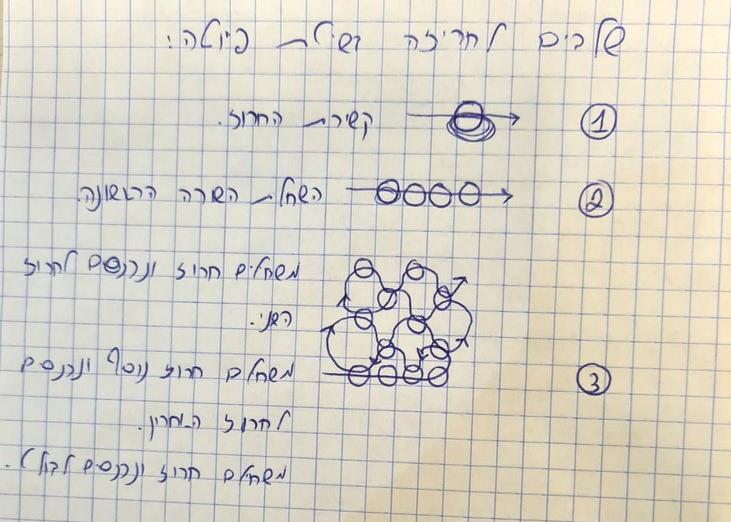 שלבים לחריזה בשיטת פיוטה:
① קשירת החרוז.
② השחלת השורה הראשונה.
משחילים חרוז ונכנסים לחרוז
השני.
③ משחילים חרוז נוסף ונכנסים
לחרוז האחרון.
משחילים חרוז ונכנסים